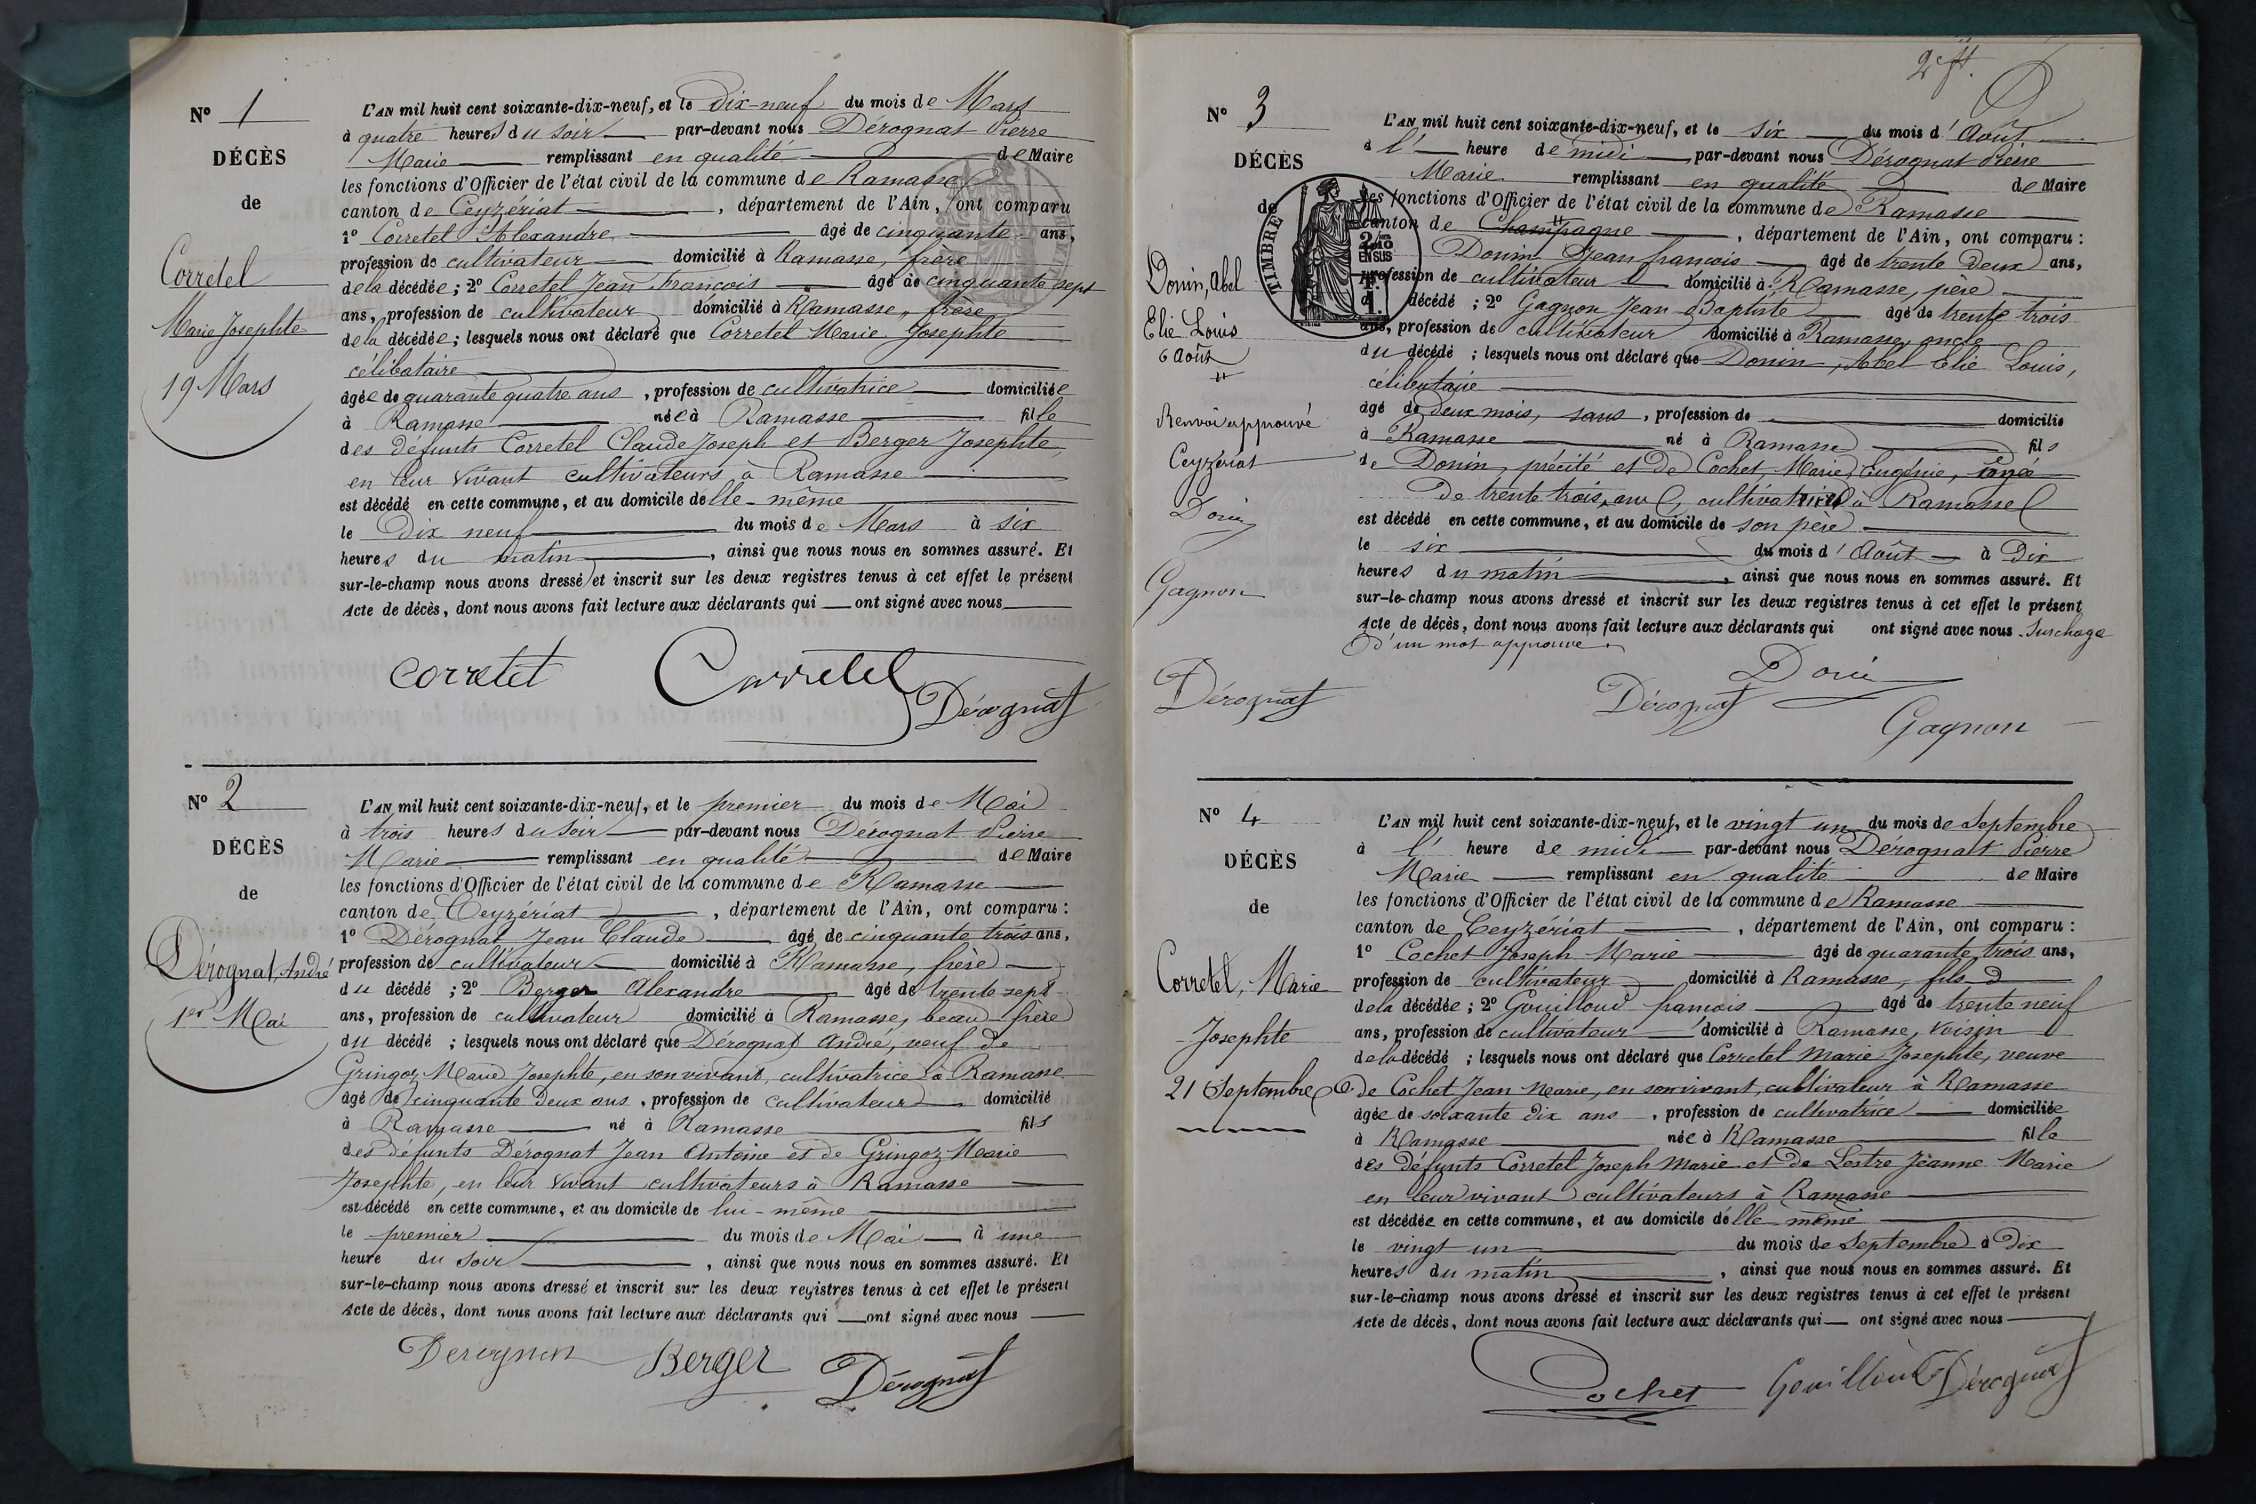 Nº 1
DÉCÈS
de
Corretel
Marie Josephte
19 Mars
L'AN mil huit cent soixante-dix-neuf, et le Dix-neuf du mois de Mars
à quatre heures du soir par-devant nous Dérognat Pierre
Marie remplissant en qualité de Maire
les fonctions d'Officier de l'état civil de la commune de Ramasse
canton de Ceyzériat, département de l'Ain, ont comparu
1º Corretel Alexandre âgé de cinquante ans,
profession de cultivateur domicilié à Ramasse, frère
de la décédée ; 2º Corretel Jean François âgé de cinquante sept
ans, profession de cultivateur domicilié à Ramasse, frère
de la décédée ; lesquels nous ont déclaré que Corretel Marie Josephte
célibataire
âgée de quarante quatre ans, profession de cultivatrice domiciliée
à Ramasse née à Ramasse fille
des défunts Corretel Claude Joseph et Berger Josephte,
en leur vivant cultivateurs à Ramasse
est décédé en cette commune, et au domicile d'elle-même
le Dix neuf du mois de Mars à six
heures du matin, ainsi que nous nous en sommes assuré. Et
sur-le-champ nous avons dressé et inscrit sur les deux registres tenus à cet effet le présent
Acte de décès, dont nous avons fait lecture aux déclarants qui ont signé avec nous
Corretet Corretel Dérognat
Nº 2
DÉCÈS
de
Dérognat, André
1er Mai
L'AN mil huit cent soixante-dix-neuf, et le premier du mois de Mai
à trois heures du soir par-devant nous Dérognat Pierre
Marie remplissant en qualité de Maire
les fonctions d'Officier de l'état civil de la commune de Ramasse
canton de Ceyzériat, département de l'Ain, ont comparu :
1º Dérognat Jean Claude âgé de cinquante trois ans,
profession de cultivateur domicilié à Ramasse, frère
du décédé ; 2º Berger Alexandre âgé de trente sept
ans, profession de cultivateur domicilié à Ramasse, beau frère
du décédé ; lesquels nous ont déclaré que Dérognat André, veuf de
Gringoz Marie Josephte, en son vivant, cultivatrice à Ramasse
âgé de cinquante deux ans, profession de cultivateur domicilié
à Ramasse né à Ramasse fils
des défunts Dérognat Jean Antoine et de Gringoz Marie
Josephte, en leur vivant cultivateurs à Ramasse
est décédé en cette commune, et au domicile de lui-même
le premier du mois de Mai à une
heure du soir, ainsi que nous nous en sommes assuré. Et
sur-le-champ nous avons dressé et inscrit sur les deux registres tenus à cet effet le présent
Acte de décès, dont nous avons fait lecture aux déclarants qui ont signé avec nous
Berger Dérognat
Nº 3
DÉCÈS
de
Donin, Abel
Elie Louis
6 Août
Renvoi approuvé
Ceyzériat
Gagnon
Dérognat
TIMBRE
2/10
EN SUS
L'AN mil huit cent soixante-dix-neuf, et le six du mois d'Août
à l' heure de midi, par-devant nous Dérognat Pierre
Marie remplissant en qualité de Maire
les fonctions d'Officier de l'état civil de la commune de Ramasse
canton de Champagne, département de l'Ain, ont comparu :
Donin Jean françois âgé de trente deux ans,
profession de cultivateur domicilié à Ramasse, père
d décédé ; 2º Gagnon Jean Baptiste âgé de trente trois
ans, profession de cultivateur domicilié à Ramasse, oncle
du décédé ; lesquels nous ont déclaré que Donin, Abel Elie Louis,
célibataire
âgé de deux mois, sans, profession de domicilié
à Ramasse né à Ramasse fils
de Donin, précité et de Cochet Marie Eugénie, âgée
de trente trois ans, cultivatrice à Ramasse
est décédé en cette commune, et au domicile de son père
le six du mois d'Août à Dix
heures du matin, ainsi que nous nous en sommes assuré. Et
sur-le-champ nous avons dressé et inscrit sur les deux registres tenus à cet effet le présent
Acte de décès, dont nous avons fait lecture aux déclarants qui ont signé avec nous. Surchage
d'un mot approuvé
Dérognat
Gagnon
Nº 4
DÉCÈS
de
Corretel, Marie
Josephte
21 Septembre
L'AN mil huit cent soixante-dix-neuf, et le vingt un du mois de Septembre
à l' heure de midi par-devant nous Dérognat Pierre
Marie remplissant en qualité de Maire
les fonctions d'Officier de l'état civil de la commune de Ramasse
canton de Ceyzériat, département de l'Ain, ont comparu :
1º Cochet Joseph Marie âgé de quarante trois ans,
profession de cultivateur domicilié à Ramasse, fils
de la décédée ; 2º Gouilloud françois âgé de trente neuf
ans, profession de cultivateur domicilié à Ramasse, voisin
de la décédé ; lesquels nous ont déclaré que Corretel Marie Josephte, veuve
de Cochet Jean Marie, en son vivant, cultivateur à Ramasse
âgée de soixante dix ans, profession de cultivatrice domiciliée
à Ramasse née à Ramasse fille
des défunts Corretel Joseph Marie et de Lestre Jeanne Marie
en leur vivant cultivateurs à Ramasse
est décédée en cette commune, et au domicile d'elle même
le vingt un du mois de Septembre à Dix
heures du matin, ainsi que nous nous en sommes assuré. Et
sur-le-champ nous avons dressé et inscrit sur les deux registres tenus à cet effet le présent
Acte de décès, dont nous avons fait lecture aux déclarants qui ont signé avec nous
Cochet Gouilloud Dérognat